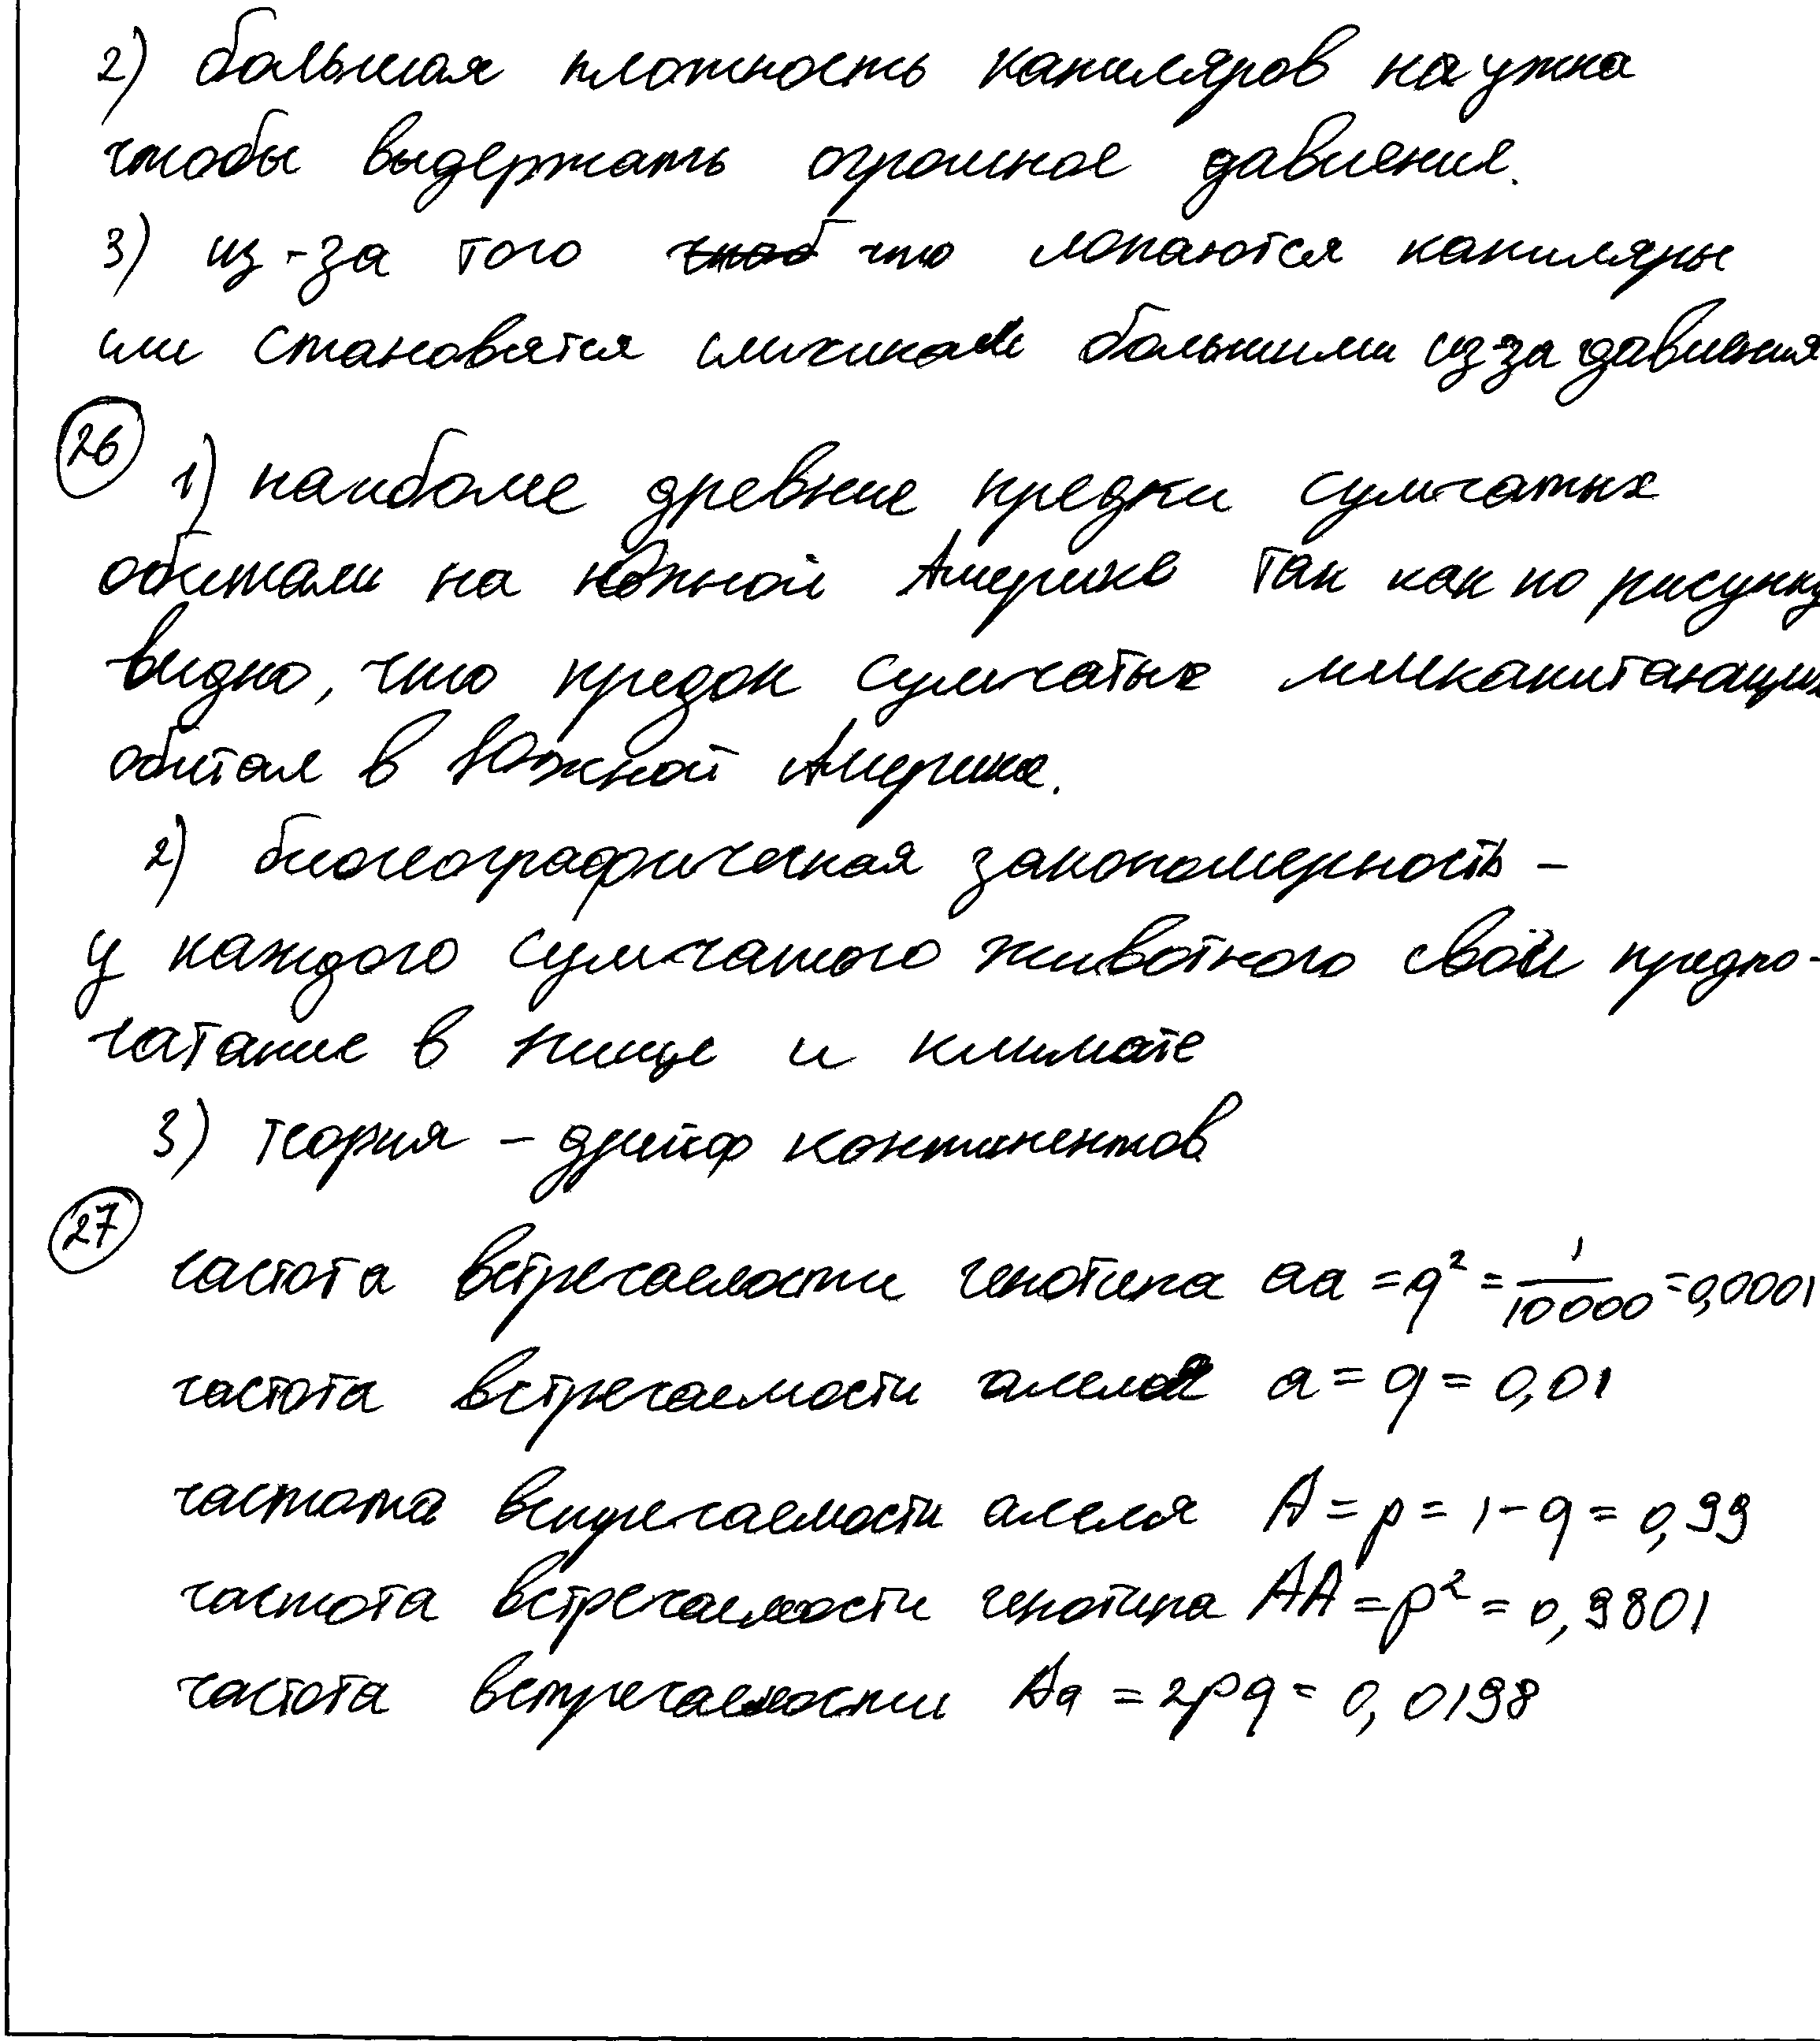 2) большая плотность капиляров на ужна
чтобы выдержать огромное давления.
3) из-за того что лопаются капиляры
или становятся слишком большими из за давления
26 1) наиболее древние предки сумчатых
обитали на Южной Америке так как по рисунку
видно, что предок сумчатых млекапитающих
обитал в Южной Америке.
2) биогеографическая закономерность -
у каждого сумчатого животного свои предпо-
чатание в пище и климате
3) теория - дрейф континентов
27
частота встречаемости генотипа aa = q² = 1/10000 = 0,0001
частота встречаемости алеля a = q = 0,01
частота встречаемости алеля A = p = 1 - q = 0,99
частота встречаемости генотипа AA = p² = 0,9801
частота встречаемости Aa = 2pq = 0,0198